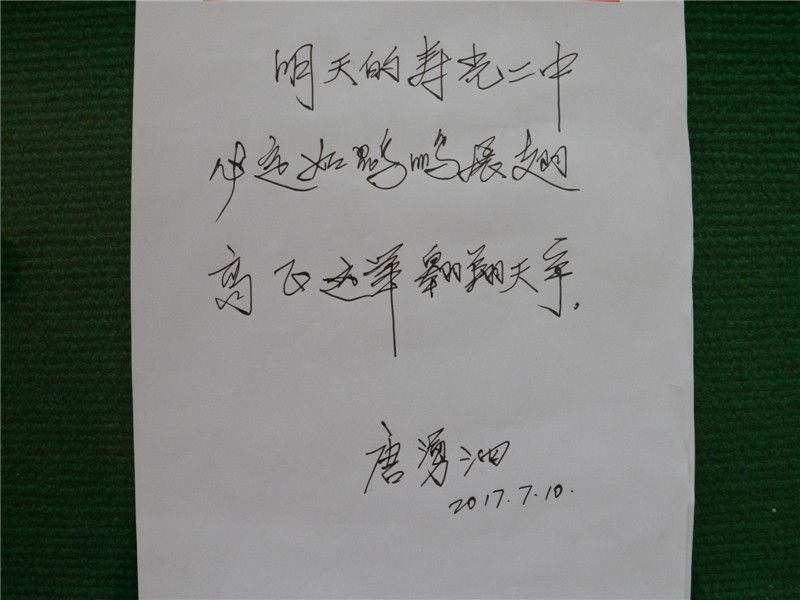 明天的寿光二中
必定如鹏展翅
高飞远举翱翔天宇.
唐湧泗
2017.7.10.